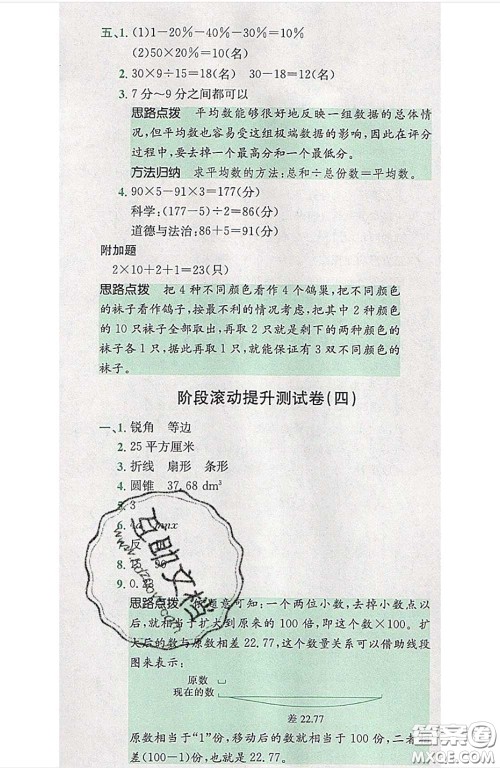 五、1. (1)1－20%－40%－30%＝10%
(2)50×20%＝10(名)
2. 30×9÷15＝18(名)　30－18＝12(名)
3. 7分～9分之间都可以
思路点拨　平均数能够很好地反映一组数据的总体情
况,但平均数也容易受这组极端数据的影响,因此在评分
过程中,要去掉一个最高分和一个最低分。
方法归纳　求平均数的方法:总和÷总份数＝平均数。
4. 90×5－91×3＝177(分)
科学:(177－5)÷2＝86(分)
道德与法治:86＋5＝91(分)
附加题
2×10＋2＋1＝23(只)
思路点拨　把4种不同颜色看作4个鸽巢,把不同颜色
的袜子看作鸽子,按最不利的情况考虑,把其中2种颜色
的10只袜子全部取出,再取2只就是剩下的两种颜色的
袜子各1只,据此再取1只,就能保证有3双不同颜色的
袜子。
阶段滚动提升测试卷(四)
一、1. 锐角　等边
2. 25平方厘米
3. 折线　扇形　条形
4. 圆锥　37.68 dm³
5. 3
6.
7. 反
8.
9. 0.
互助文档
思路点拨　题意可知:一个两位小数,去掉小数点以
后,就相当于扩大到原来的100倍,即这个数×100。扩
大后的数与原数相差22.77,这个数量关系可以借助线段
图来表示:
原数
现在的数
差22.77
原数相当于“1”份,移动后的数就相当于100份,二者
差(100－1)份,也就是22.77。
答案圈
MXQE.COM